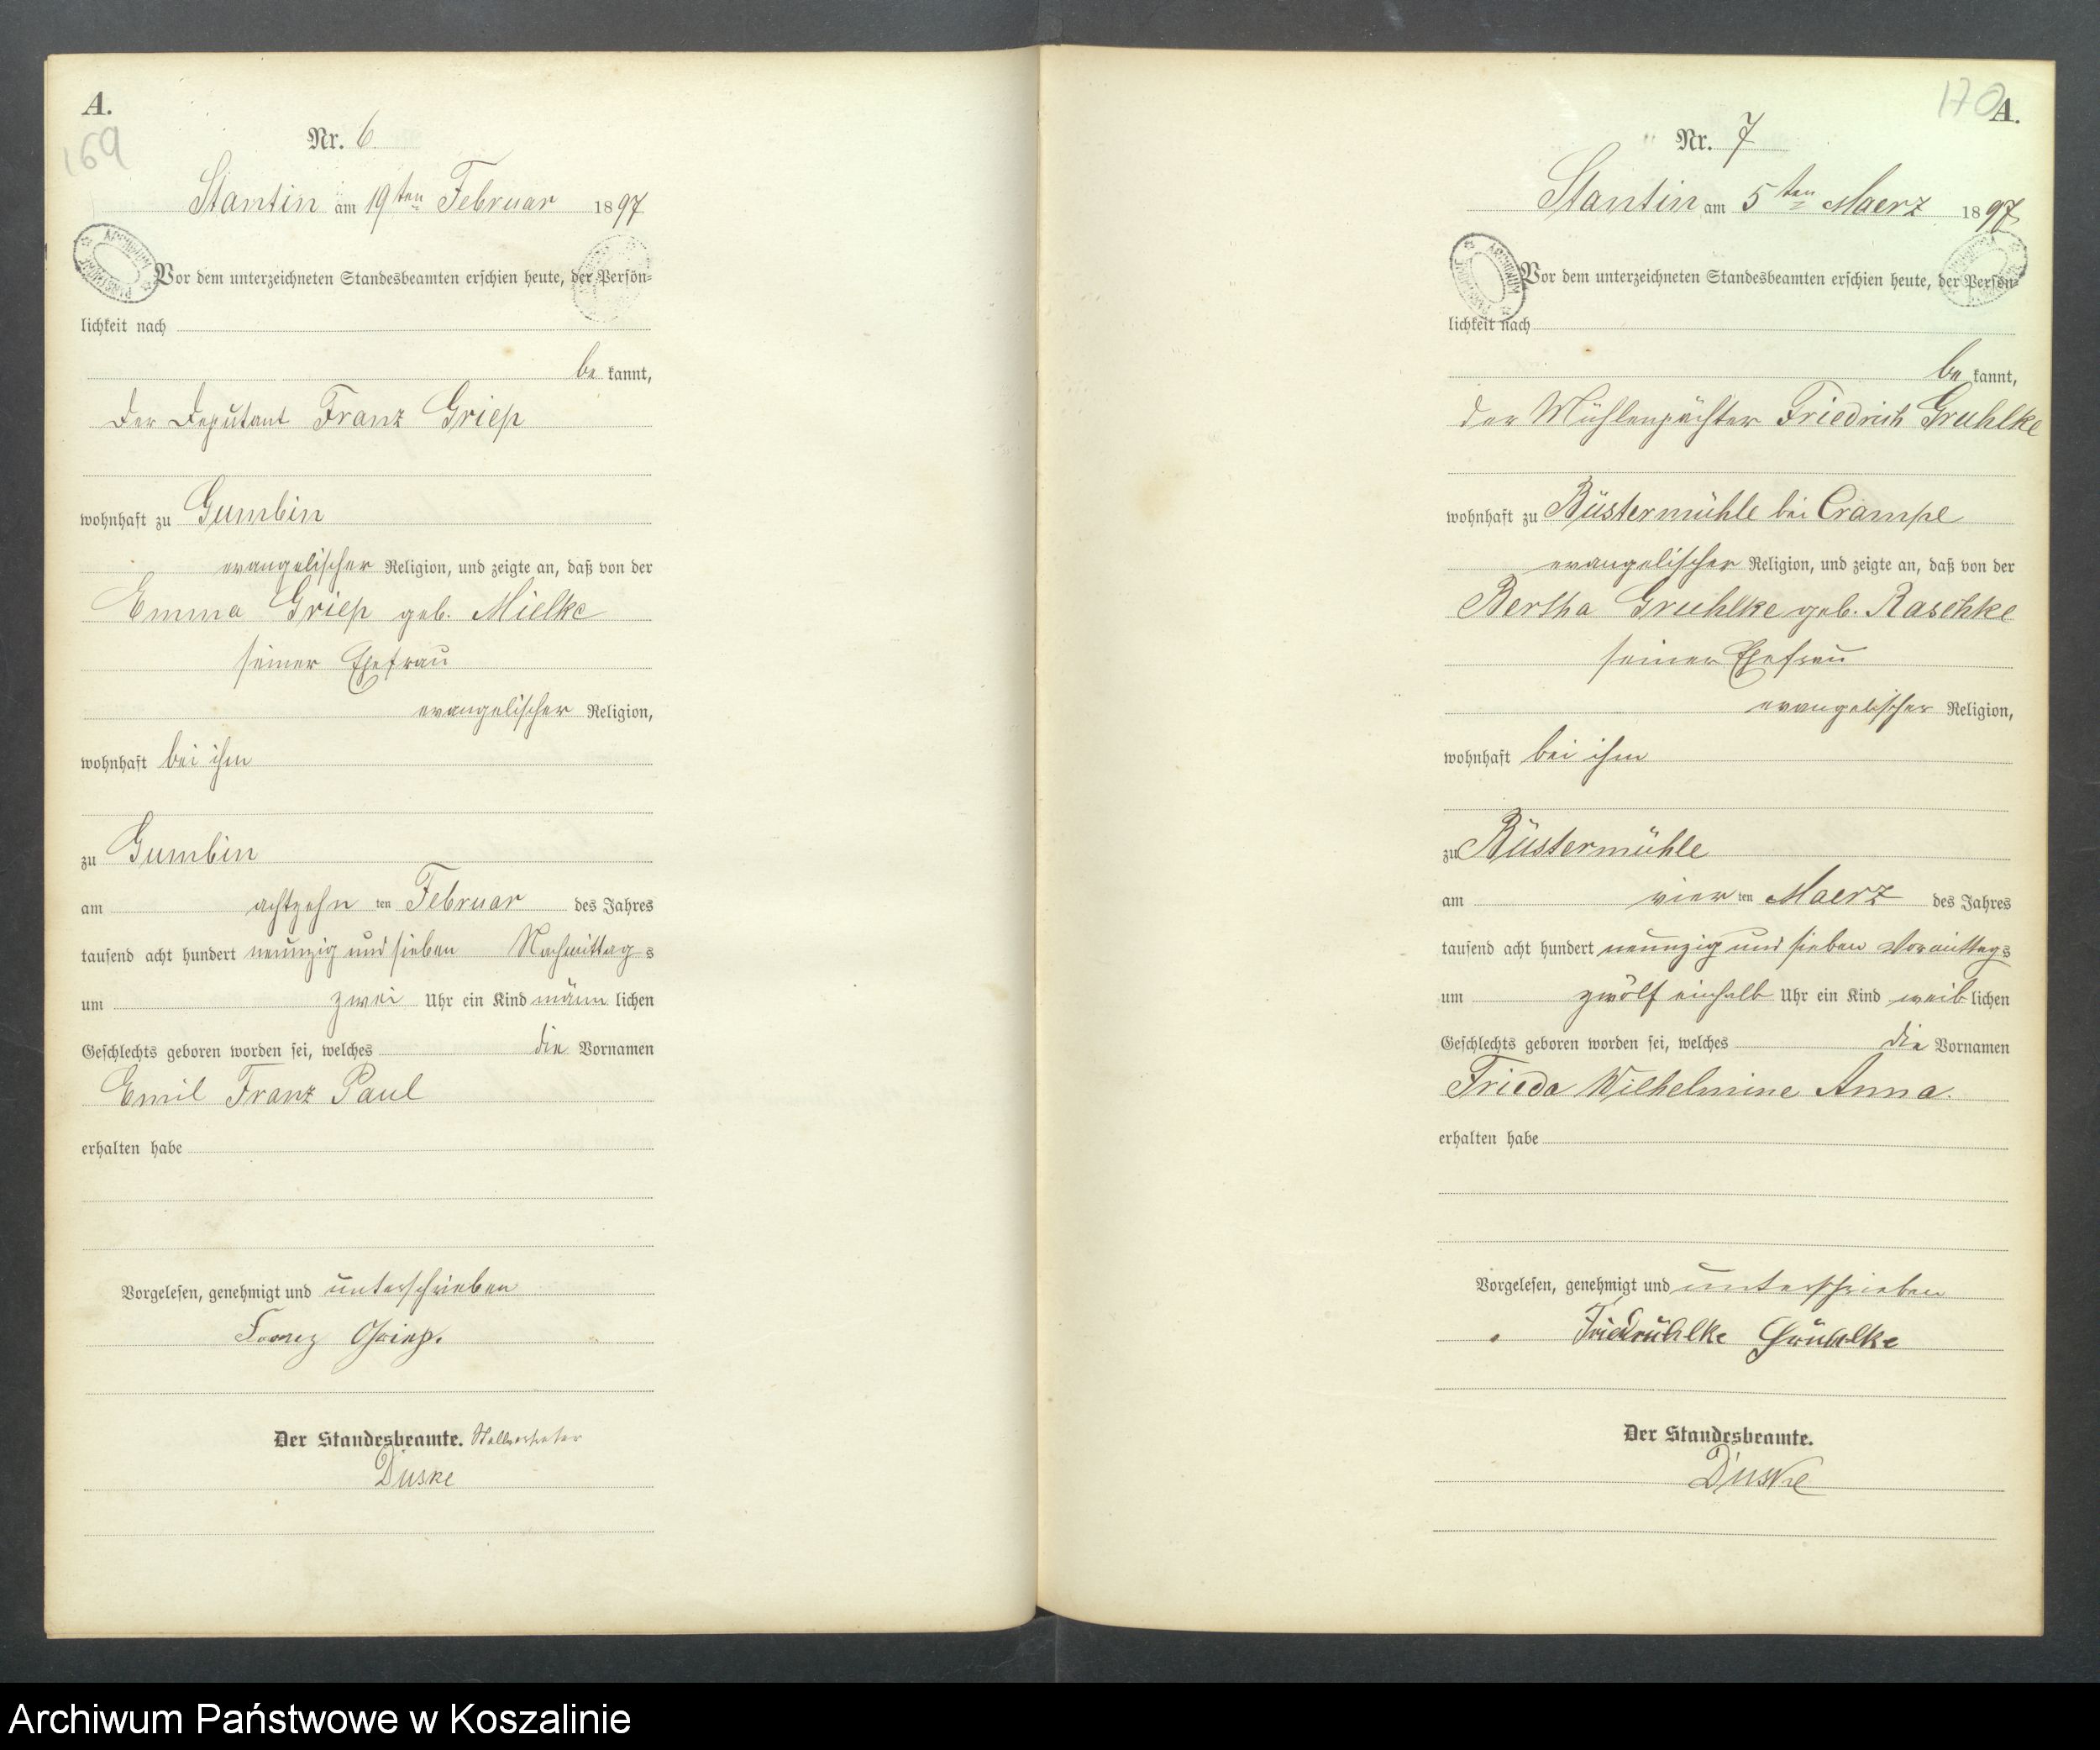 A.
169
Nr. 6
Stantin am 19ten Februar 1897
Vor dem unterzeichneten Standesbeamten erschien heute, der Persön-
lichkeit nach
be kannt,
der Deputant Franz Griep
wohnhaft zu Gumbin
evangelischer Religion, und zeigte an, daß von der
Emma Griep geb. Mielke
seiner Ehefrau
evangelischer Religion,
wohnhaft bei ihm
zu Gumbin
am achtzehn ten Februar des Jahres
tausend acht hundert neunzig und sieben Nachmittag s
um zwei Uhr ein Kind männ lichen
Geschlechts geboren worden sei, welches die Vornamen
Emil Franz Paul
erhalten habe
Vorgelesen, genehmigt und unterschrieben
Franz Griep.
Der Standesbeamte. Stellvertreter
Duske
170 A.
Nr. 7
Stantin am 5ten Maerz 1897
Vor dem unterzeichneten Standesbeamten erschien heute, der Persön-
lichkeit nach
be kannt,
der Mühlenpächter Friedrich Gruhlke
wohnhaft zu Büstermühle bei Crampe
evangelischer Religion, und zeigte an, daß von der
Bertha Gruhlke geb. Raschke
seiner Ehefrau
evangelischer Religion,
wohnhaft bei ihm
zu Büstermühle
am vier ten Maerz des Jahres
tausend acht hundert neunzig und sieben Vormittags
um zwölf einhalb Uhr ein Kind weib lichen
Geschlechts geboren worden sei, welches die Vornamen
Frieda Wilhelmine Anna.
erhalten habe
Vorgelesen, genehmigt und unterschrieben
Gruhlke
Der Standesbeamte.
Duske
Archiwum Państwowe w Koszalinie